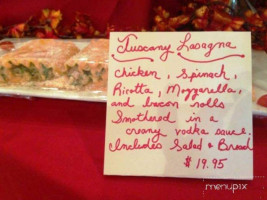 Tuscany Lasagna
Chicken, Spinach,
Ricotta, Mozzarella,
and bacon rolls
Smothered in a
creamy vodka sauce.
Includes Salad & Bread
$19.95
menupix